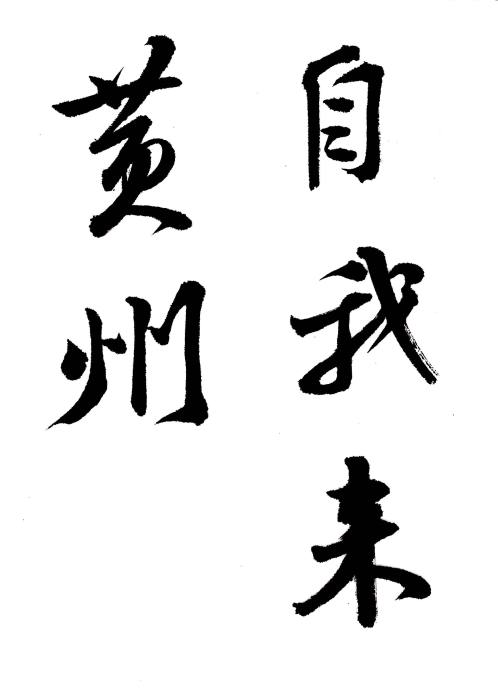 自我来
黄州